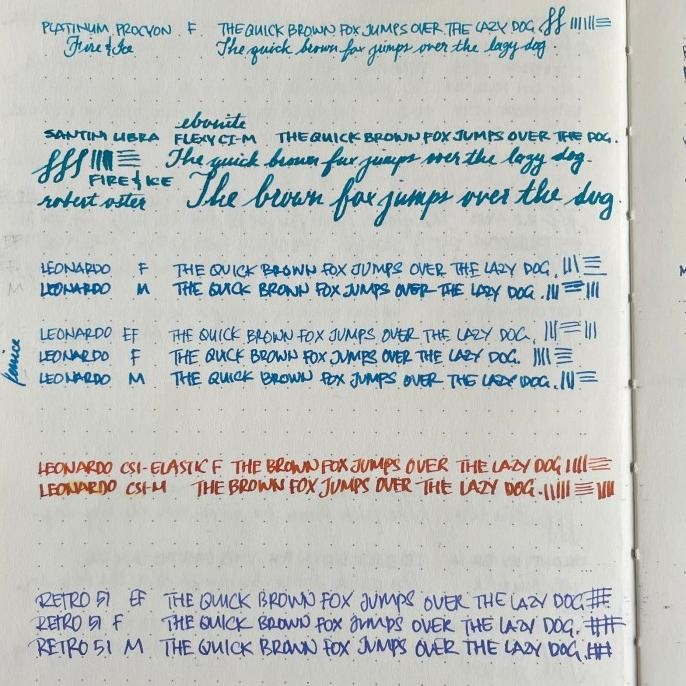 PLATINUM PROCYON F THE QUICK BROWN FOX JUMPS OVER THE LAZY DOG
Fire & Ice The quick brown fox jumps over the lazy dog.
ebonite
SANTINI LIBRA FLEXY CI-M THE QUICK BROWN FOX JUMPS OVER THE DOG.
The quick brown fox jumps over the lazy dog.
FIRE & ICE
robert oster The brown fox jumps over the dog.
LEONARDO F THE QUICK BROWN FOX JUMPS OVER THE LAZY DOG.
LEONARDO M THE QUICK BROWN FOX JUMPS OVER THE LAZY DOG.
fenice
LEONARDO EF THE QUICK BROWN FOX JUMPS OVER THE LAZY DOG.
LEONARDO F THE QUICK BROWN FOX JUMPS OVER THE LAZY DOG.
LEONARDO M THE QUICK BROWN FOX JUMPS OVER THE LAZY DOG.
LEONARDO CSI-ELASTIC F THE BROWN FOX JUMPS OVER THE LAZY DOG
LEONARDO CSI-M THE BROWN FOX JUMPS OVER THE LAZY DOG.
RETRO 51 EF THE QUICK BROWN FOX JUMPS OVER THE LAZY DOG
RETRO 51 F THE QUICK BROWN FOX JUMPS OVER THE LAZY DOG.
RETRO 51 M THE QUICK BROWN FOX JUMPS OVER THE LAZY DOG.